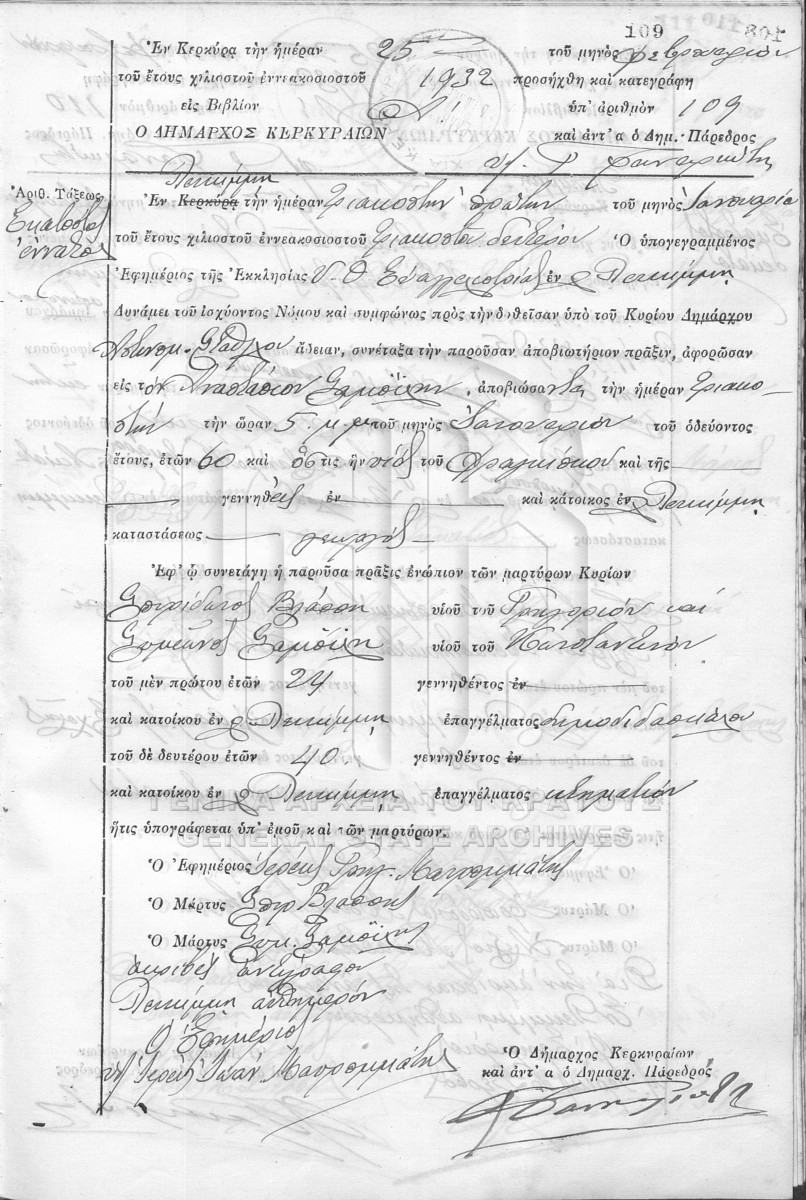 109
Ἐν Κερκύρᾳ τὴν ἡμέραν 25 τοῦ μηνὸς Φεβρουαρίου
τοῦ ἔτους χιλιοστοῦ ἐννεακοσιοστοῦ 1932 προσήχθη καὶ κατεγράφη
εἰς Βιβλίον ὑπ' ἀριθμὸν 109
Ο ΔΗΜΑΡΧΟΣ ΚΕΡΚΥΡΑΙΩΝ καὶ ἀντ' α ὁ Δημ. Πάρεδρος
Λευκίμμη
Ἀριθ. Τάξεως
Ἑκατοστὸς
ἔννατος
Ἐν Κερκύρᾳ τὴν ἡμέραν τριακοστὴν πρώτην τοῦ μηνὸς Ἰανουαρίου
τοῦ ἔτους χιλιοστοῦ ἐννεακοσιοστοῦ τριακοστοῦ δευτέρου Ὁ ὑπογεγραμμένος
Ἐφημέριος τῆς Ἐκκλησίας Υ. Θ. Εὐαγγελιστρίας ἐν Λευκίμμῃ
Δυνάμει τοῦ ἰσχύοντος Νόμου καὶ συμφώνως πρὸς τὴν δοθεῖσαν ὑπὸ τοῦ Κυρίου Δημάρχου
Ἀστυνομ. Σταθμου ἄδειαν, συνέταξα τὴν παροῦσαν ἀποβιωτήριον πρᾶξιν, ἀφορῶσαν
εἰς τὸν Ἀναστάσιον Σαμοΐλην, ἀποβιώσαντα τὴν ἡμέραν τριακο-
στὴν τὴν ὥραν 5 μ.μ. τοῦ μηνὸς Ἰανουαρίου τοῦ ὁδεύοντος
ἔτους, ἐτῶν 60 καὶ ὅστις ἦν υἱὸς τοῦ Φραγκίσκου καὶ τῆς
γεννηθεὶς ἐν καὶ κάτοικος ἐν Λευκίμμῃ
καταστάσεως γεωργὸς
Ἐφ' ᾧ συνετάγη ἡ παροῦσα πρᾶξις ἐνώπιον τῶν μαρτύρων Κυρίων
Σπυρίδωνος Βλάσση υἱοῦ τοῦ Γρηγορίου καὶ
Συμεῶνος Σαμοΐλη υἱοῦ τοῦ Κωνσταντίνου
τοῦ μὲν πρώτου ἐτῶν 24 γεννηθέντος ἐν
καὶ κατοίκου ἐν Λευκίμμῃ ἐπαγγέλματος δημοδιδασκάλου
τοῦ δὲ δευτέρου ἐτῶν 40 γεννηθέντος ἐν
καὶ κατοίκου ἐν Λευκίμμῃ ἐπαγγέλματος κτηματίου
ΓΕΝΙΚΑ ΑΡΧΕΙΑ ΤΟΥ ΚΡΑΤΟΥΣ
GENERAL STATE ARCHIVES
ἥτις ὑπογράφεται ὑπ' ἐμοῦ καὶ τῶν μαρτύρων.
Ὁ Ἐφημέριος Ἱερεὺς Μαυρομμάτης
Ὁ Μάρτυς Σπυρ Βλάσσης
Ὁ Μάρτυς Συμ. Σαμοΐλης
ἀκριβὲς ἀντίγραφον
Λευκίμμη αὐθημερόν
Ὁ Ἐφημέριος
Ἱερεὺς Ἰωάν. Μαυρομμάτης
Ὁ Δήμαρχος Κερκυραίων
καὶ ἀντ' α ὁ Δημαρχ. Πάρεδρος